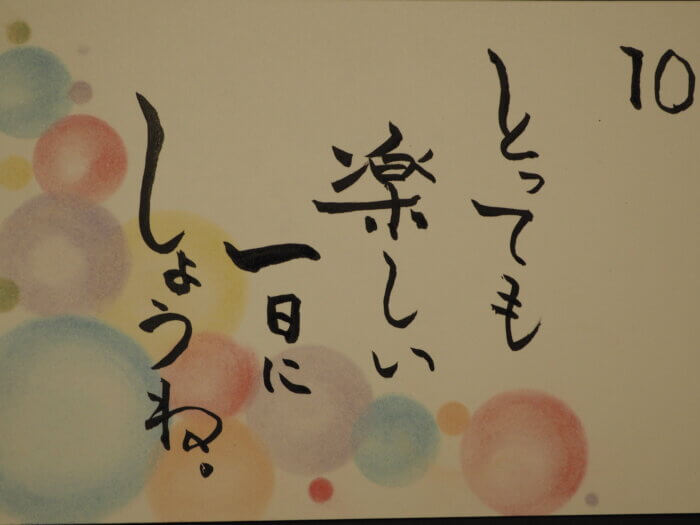 10
とっても
楽しい
一日に
しょうね.